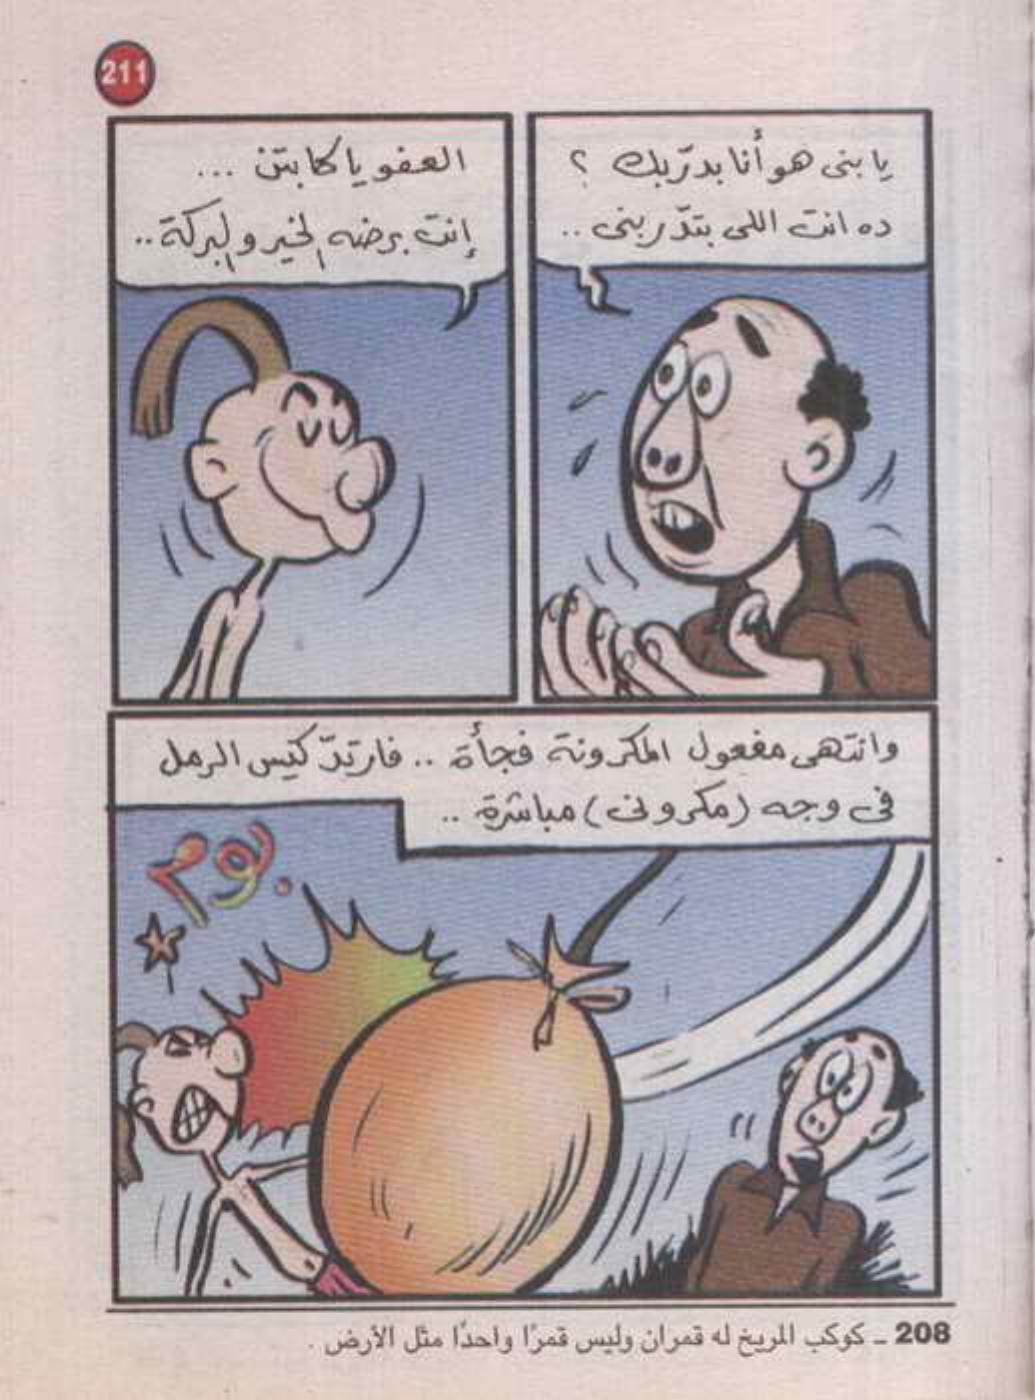 211
يا بنى هو أنا بدرّبك ؟
ده انت اللى بتدّربنى ..
العفو يا كابتن ...
إنت برضه الخير والبركة ..
وانتهى مفعول المكرونة فجأة .. فارتدّ كيس الرمل
فى وجه (مكرونى) مباشرة ..
بوم
208 ـ كوكب المريخ له قمران وليس قمرًا واحدًا مثل الأرض .